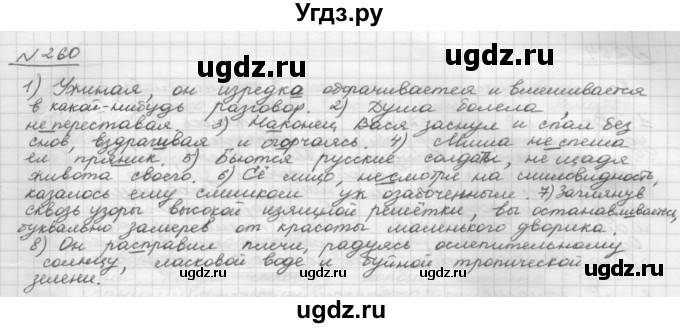 Угдз.ру
N 260
1) Ужиная, он изредка оборачивается и вмешивается
в какой-нибудь разговор. 2) Душа болела,
не переставая. 3) Наконец Вася заснул и спал без
снов, вздрагивая и огорчаясь. 4) Миша не спеша
ел пряник. 5) Бьются русские солдаты, не щадя
живота своего. 6) Её лицо, несмотря на миловидность,
казалось ему слишком уж озабоченным. 7) Заглянув
сквозь узоры высокой изящной решётки, вы останавливаетесь,
буквально замерев от красоты маленького дворика.
8) Он расправил плечи, радуясь ослепительному
солнцу, ласковой воде и буйной тропической
зелени.
ugdz.ru
ugdz.ru
ugdz.ru
ugdz.ru
ugdz.ru
ugdz.ru
ugdz.ru
ugdz.ru
ugdz.ru